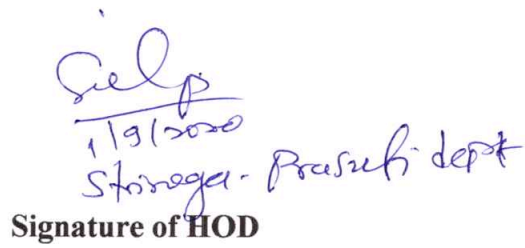 1/9/2020
Striroga - Prasuti dept
Signature of HOD